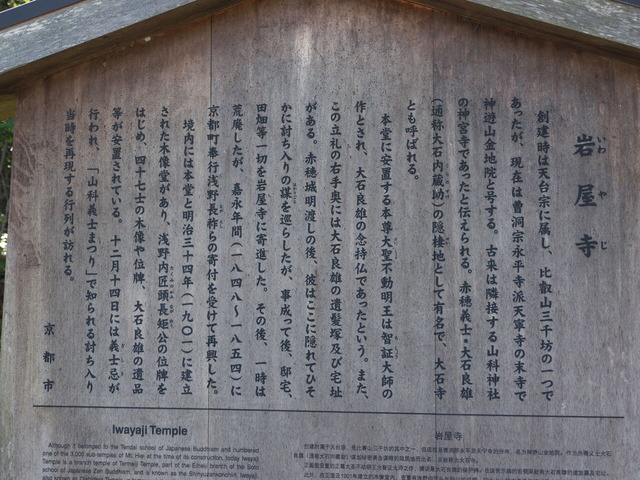 岩屋寺
いわやじ
創建時は天台宗に属し、比叡山三千坊の一つで
あったが、現在は曹洞宗永平寺派天寧寺の末寺で
神遊山金地院と号する。古来は隣接する山科神社
の神宮寺であったと伝えられる。赤穂義士・大石良雄
(通称大石内蔵助)の隠棲地として有名で、大石寺
とも呼ばれる。
本堂に安置する本尊大聖不動明王は智証大師の
作とされ、大石良雄の念持仏であったという。また、
この立札の右手奥には大石良雄の遺髪塚及び宅址
がある。赤穂城明渡しの後、彼はここに隠れてひそ
かに討ち入りの謀を巡らしたが、事成って後、邸宅、
田畑等一切を岩屋寺に寄進した。その後、一時は
荒廃したが、嘉永年間(一八四八〜一八五四)に
京都町奉行浅野長祚らの寄付を受けて再興した。
境内には本堂と明治三十四年(一九〇一)に建立
された木像堂があり、浅野内匠頭長矩公の位牌を
はじめ、四十七士の木像や位牌、大石良雄の遺品
等が安置されている。十二月十四日には義士忌が
行われ、「山科義士まつり」で知られる討ち入り
当時を再現する行列が訪れる。
京都市
Iwayaji Temple
Although it belonged to the Tendai school of Japanese Buddhism and numbered
one of the 3,000 sub-temples of Mt. Hiei at the time of its construction, today Iwayaji
Temple is a branch temple of Tenneiji Temple, part of the Eiheiji branch of the Soto
school of Japanese Zen Buddhism, and is known as the Shinyuzankonchiin, Iwayaji
岩屋寺